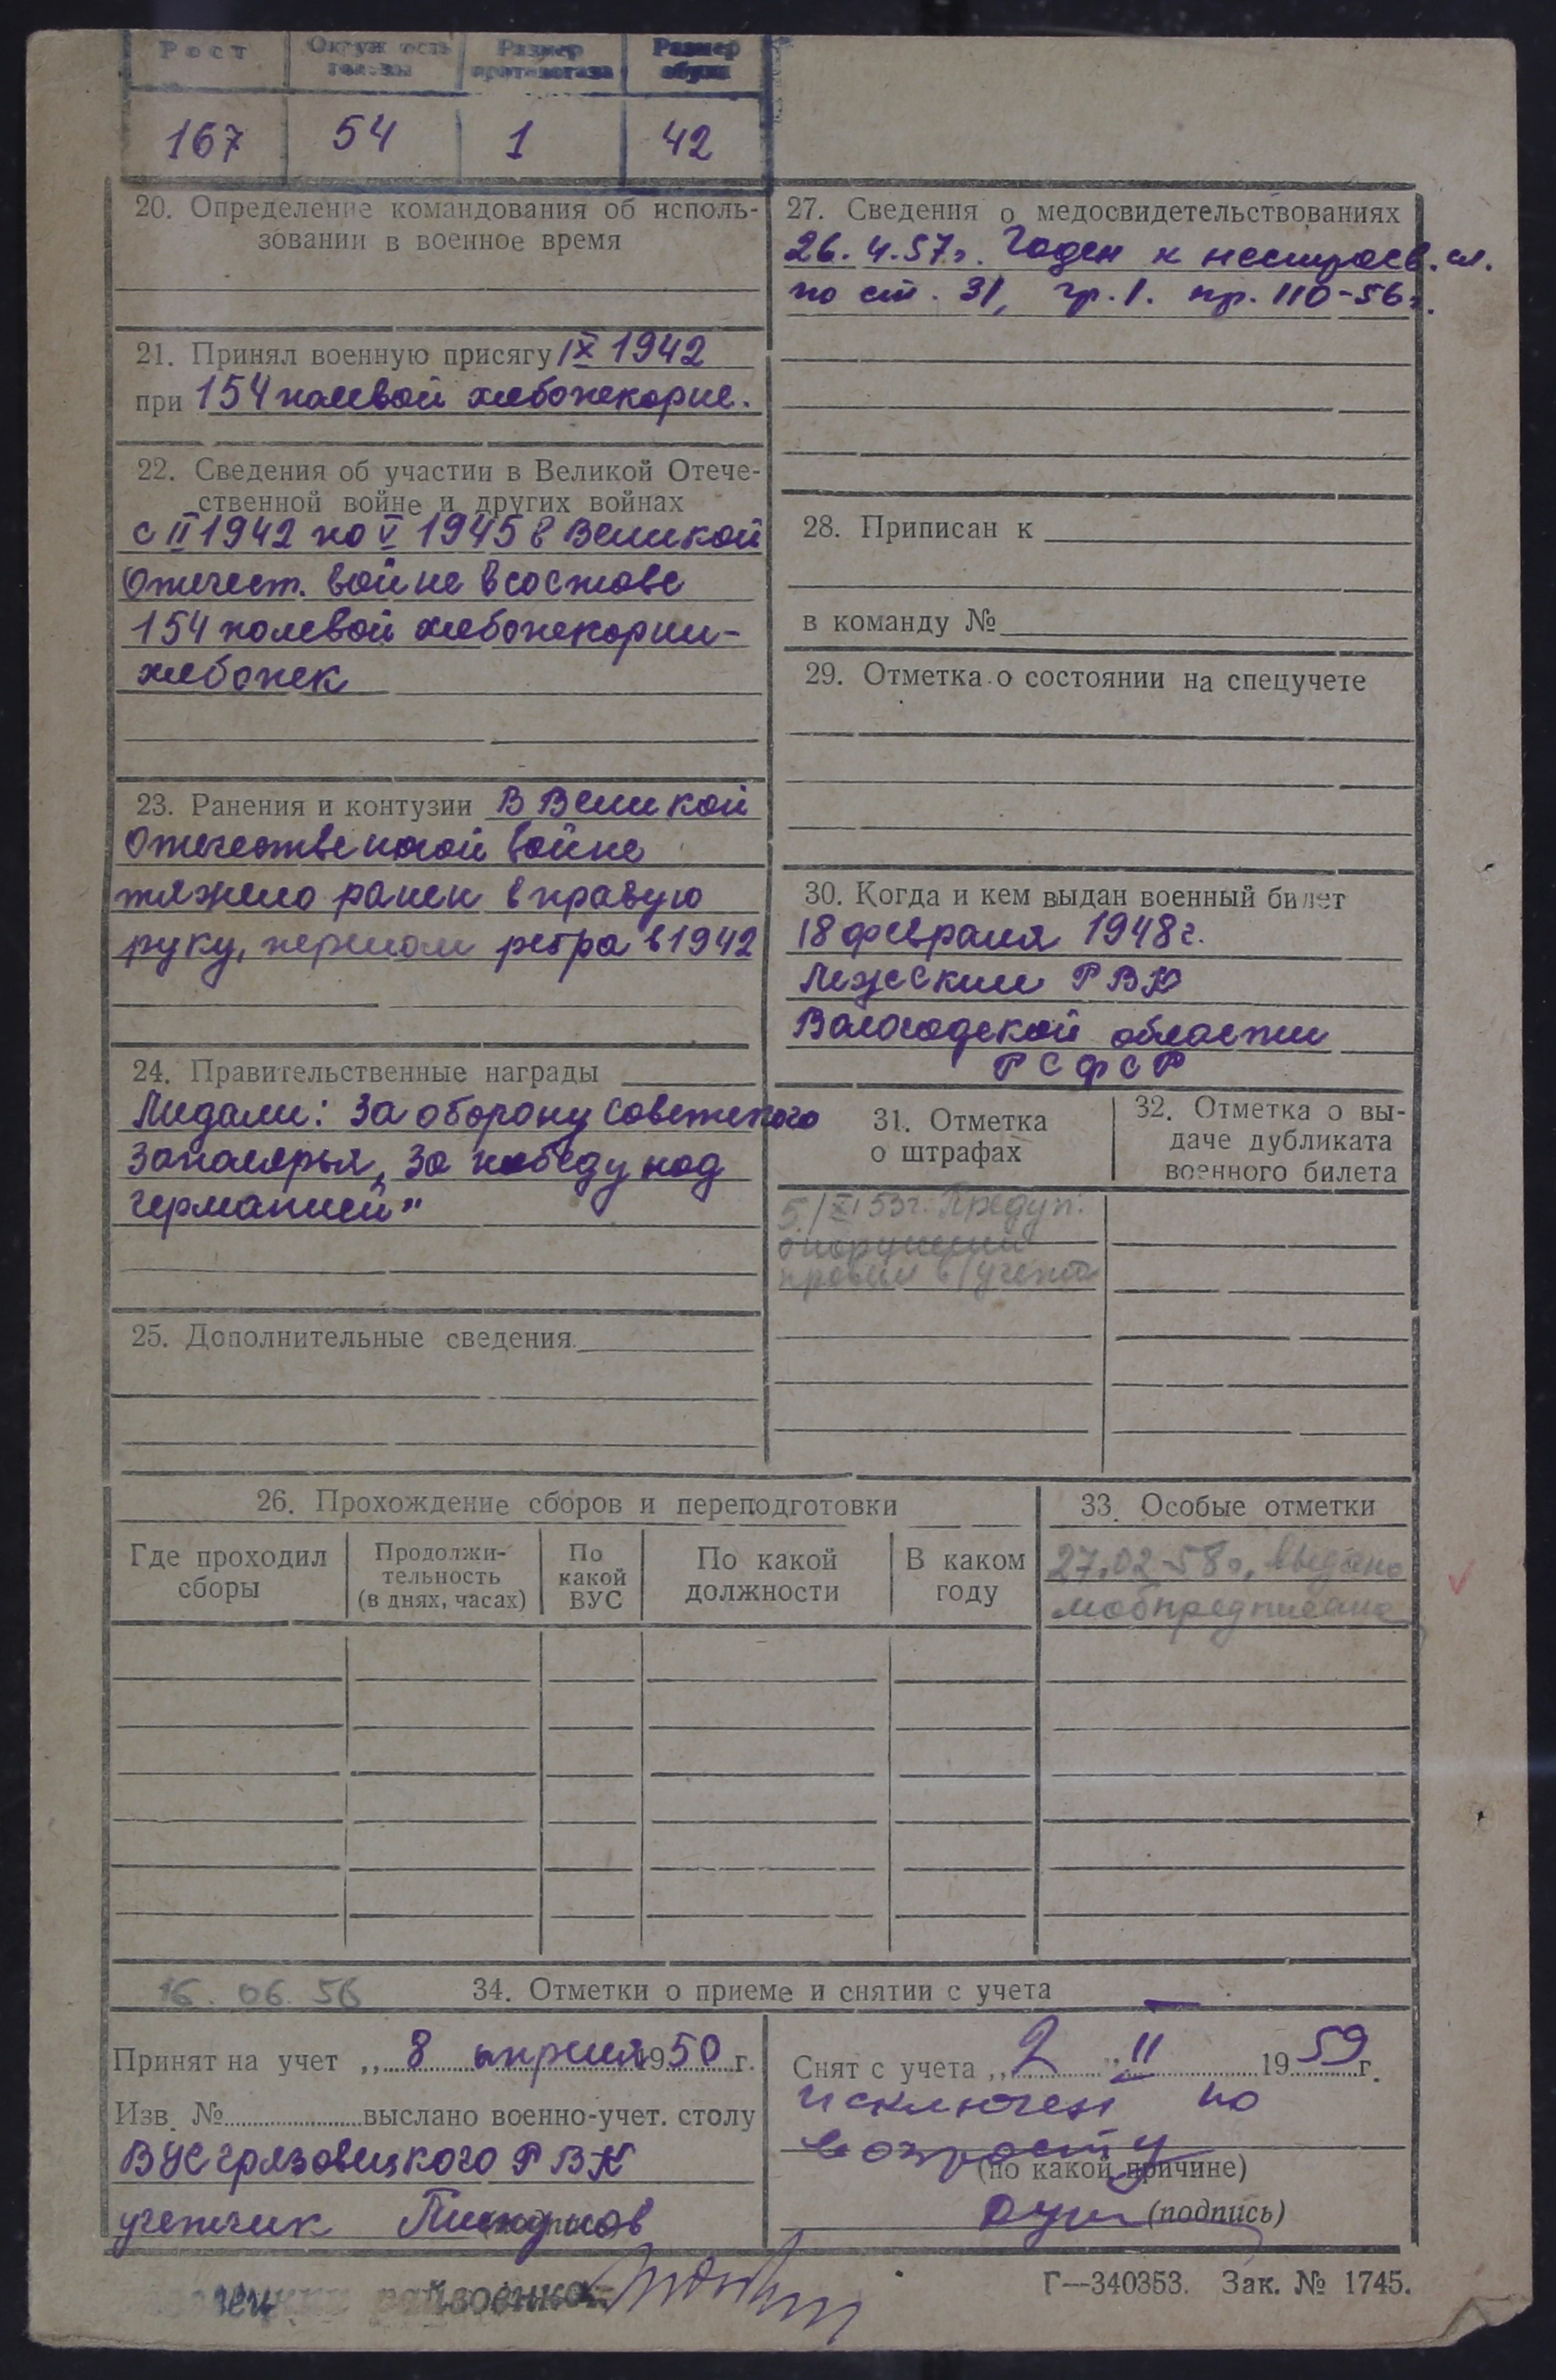 Рост Окружность головы Размер противогаза Размер обуви
167 54 1 42
20. Определение командования об исполь-
зовании в военное время
21. Принял военную присягу IX 1942
при 154 полевой хлебопекорне.
22. Сведения об участии в Великой Отече-
ственной войне и других войнах
с II 1942 по V 1945 в Великой
Отечест. войне в составе
154 полевой хлебопекорни-
хлебопек
23. Ранения и контузии В Великой
Отечественной войне
тяжело ранен в правую
руку, перелом ребра в 1942
24. Правительственные награды
Медали: За оборону Советского
Заполярья, За победу над
германией"
25. Дополнительные сведения
27. Сведения о медосвидетельствованиях
26.4.57г. Годен к нестроев. сл.
по ст. 31, гр.1. пр. 110-56г.
28. Приписан к
в команду №
29. Отметка о состоянии на спецучете
30. Когда и кем выдан военный билет
18 февраля 1948г.
Лежским РВК
Вологодской области
РСФСР
31. Отметка
о штрафах
5/XI 53г. Предуп.
о нарушении
правил в/учета
32. Отметка о вы-
даче дубликата
военного билета
26. Прохождение сборов и переподготовки
Где проходил
сборы
Продолжи-
тельность
(в днях, часах)
По
какой
ВУС
По какой
должности
В каком
году
33. Особые отметки
27.02-58г. выдано
мобпредписание
16. 06. 56 34. Отметки о приеме и снятии с учета
Принят на учет „ 8 апреля 1950 г.
Изв. № выслано военно-учет. столу
ВУС грязовецкого РВК
учетчик
Снят с учета „ 2 " II 19 59 г.
исключен по
возрасту
(по какой причине)
(подпись)
райвоенко-
Г—340353. Зак. № 1745.